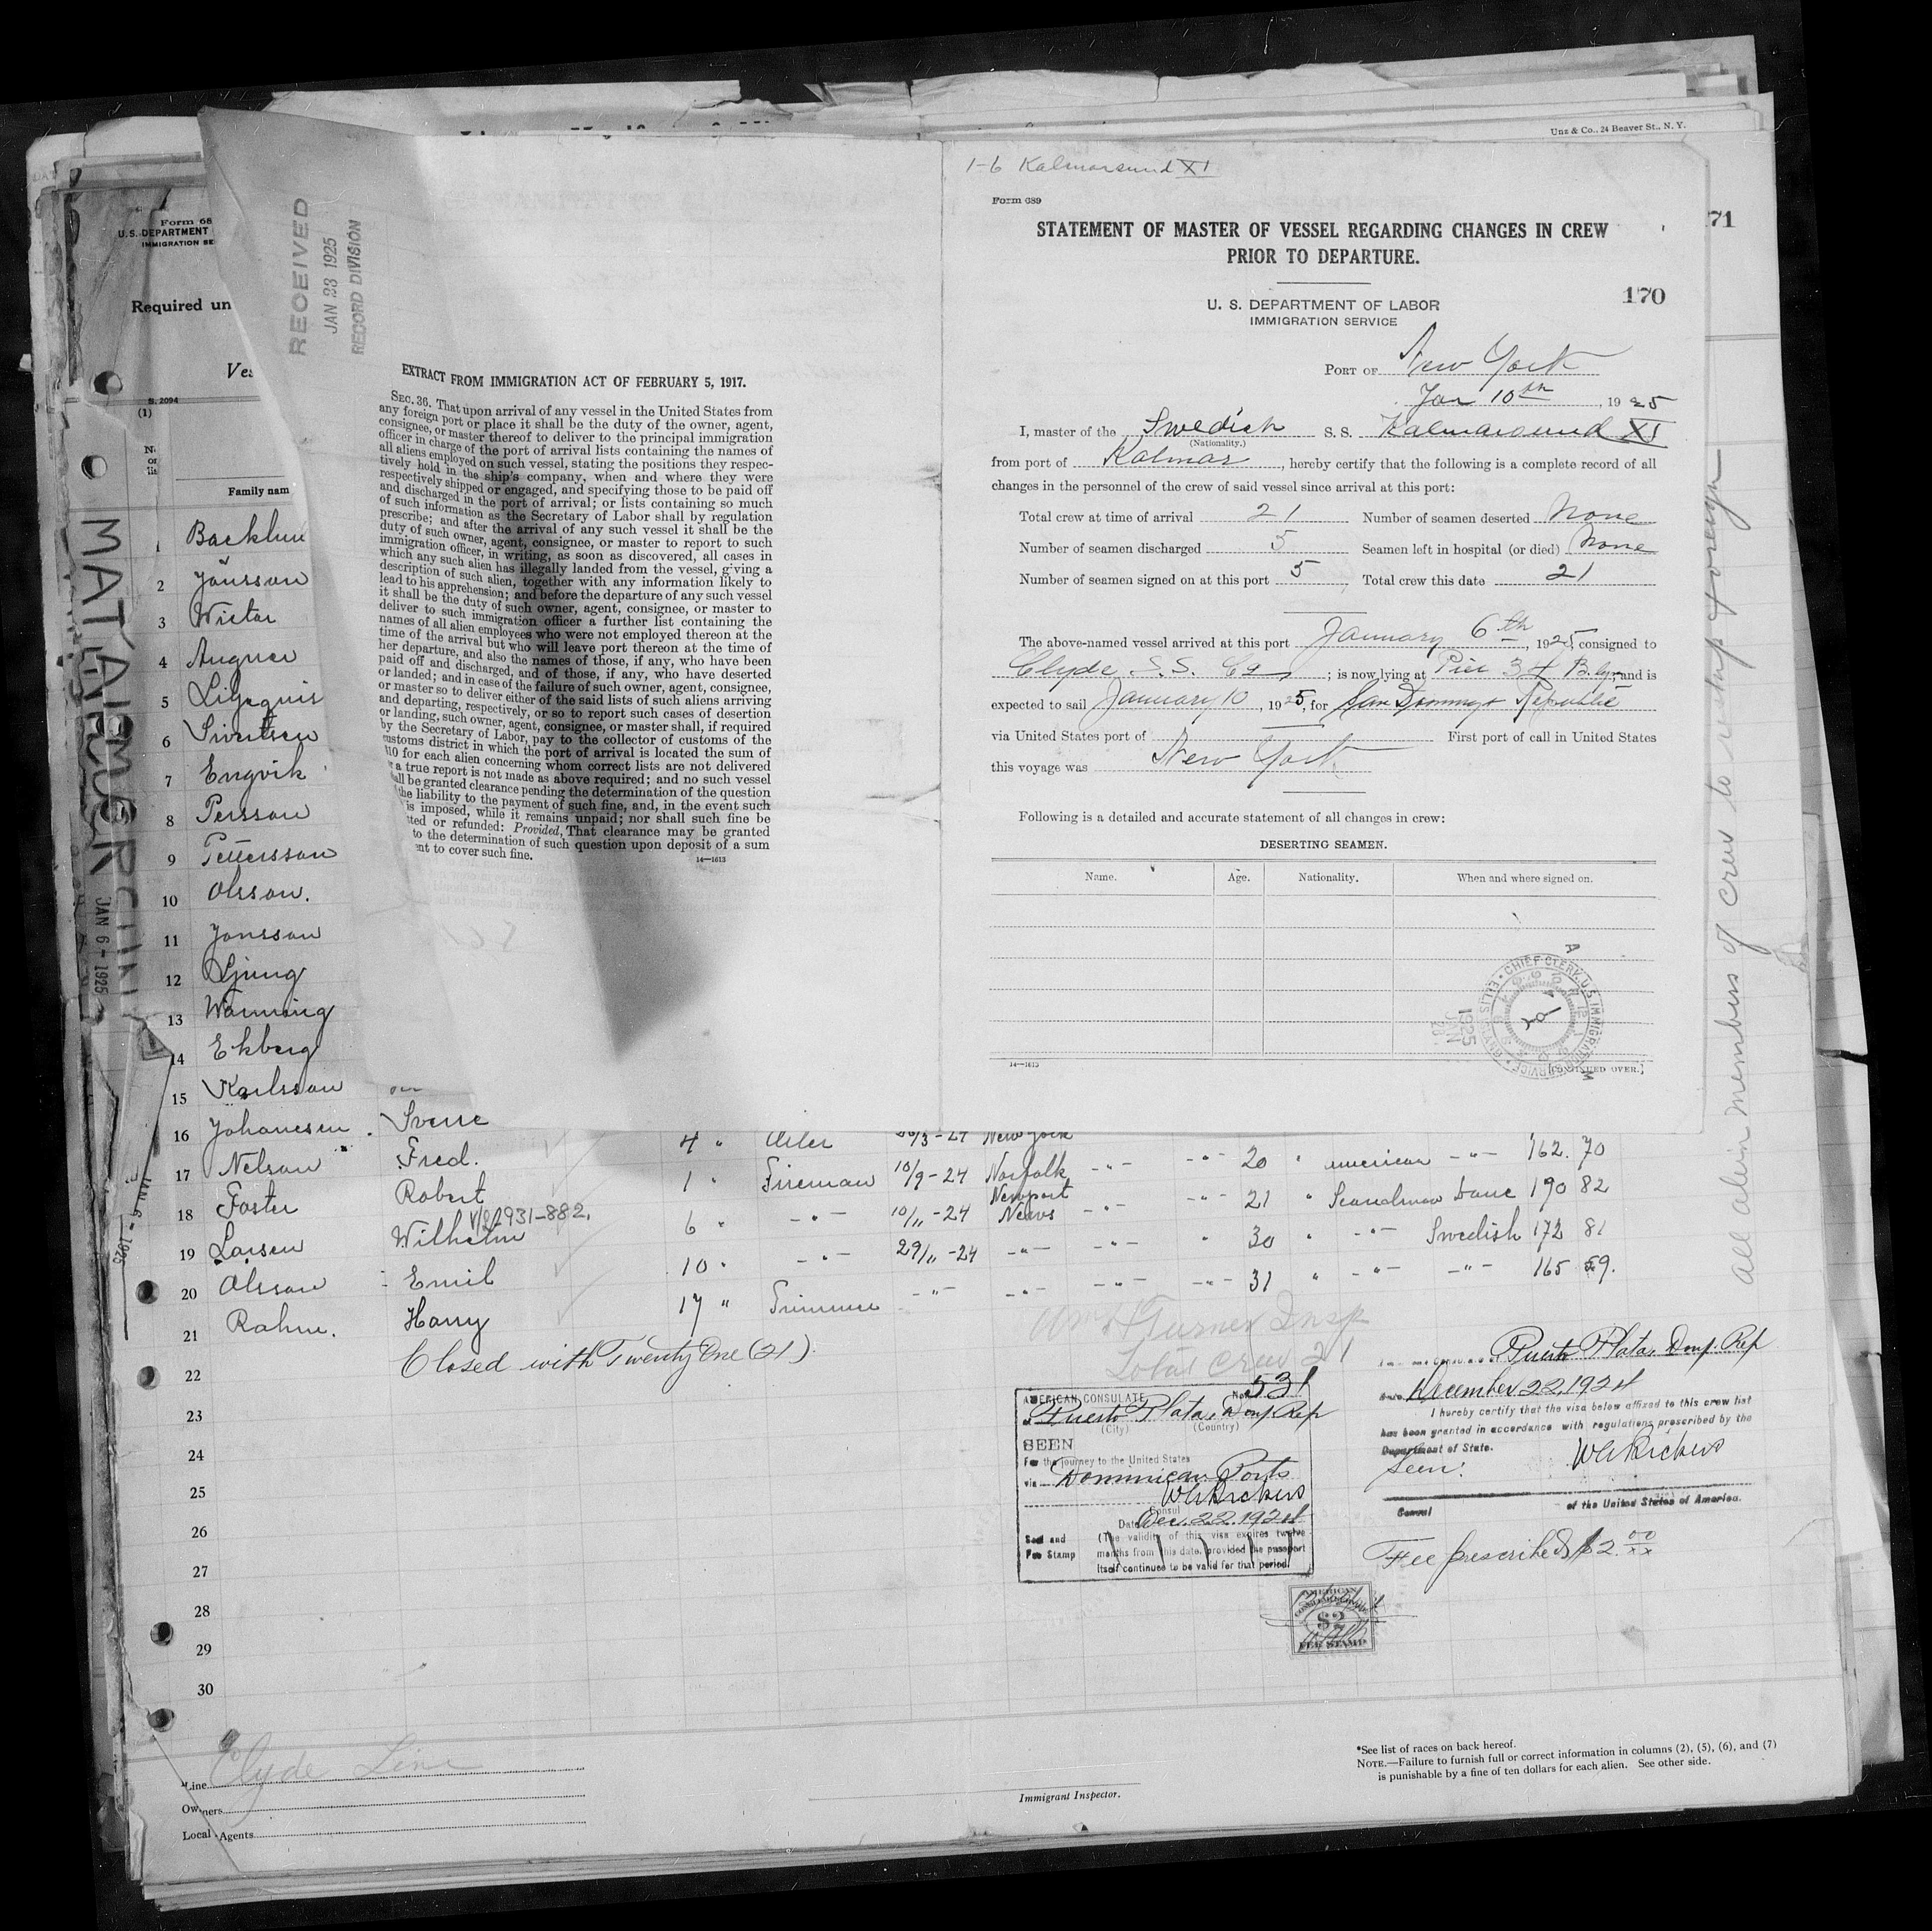 Unz & Co., 24 Beaver St., N. Y.
171
1-6 Kalmarsund XI
Form 689
STATEMENT OF MASTER OF VESSEL REGARDING CHANGES IN CREW
PRIOR TO DEPARTURE.
170
U. S. DEPARTMENT OF LABOR
IMMIGRATION SERVICE
PORT OF New York
Jan 10th, 1925
I, master of the Swedish S. S. Kalmarsund XI
(Nationality.)
from port of Kalmar, hereby certify that the following is a complete record of all
changes in the personnel of the crew of said vessel since arrival at this port:
Total crew at time of arrival 21 Number of seamen deserted None
Number of seamen discharged 5 Seamen left in hospital (or died) None
Number of seamen signed on at this port 5, Total crew this date 21
The above-named vessel arrived at this port January 6th, 1925, consigned to
Clyde S.S. Co; is now lying at Pier 34 Bklyn, and is
expected to sail January 10, 1925, for San Domingo Republic
via United States port of First port of call in United States
this voyage was New York
Following is a detailed and accurate statement of all changes in crew:
DESERTING SEAMEN.
Name. Age. Nationality. When and where signed on.
CHIEF CLERK, U.S. IMMIGRATION SERVICE
1925
JAN
14—1613
[CONTINUED OVER.]
RECEIVED
JAN 23 1925
RECORD DIVISION
EXTRACT FROM IMMIGRATION ACT OF FEBRUARY 5, 1917.
SEC. 36. That upon arrival of any vessel in the United States from
any foreign port or place it shall be the duty of the owner, agent,
consignee, or master thereof to deliver to the principal immigration
officer in charge of the port of arrival lists containing the names of
all aliens employed on such vessel, stating the positions they respec-
tively hold in the ship's company, when and where they were
respectively shipped or engaged, and specifying those to be paid off
and discharged in the port of arrival; or lists containing so much
of such information as the Secretary of Labor shall by regulation
prescribe; and after the arrival of any such vessel it shall be the
duty of such owner, agent, consignee, or master to report to such
immigration officer, in writing, as soon as discovered, all cases in
which any such alien has illegally landed from the vessel, giving a
description of such alien, together with any information likely to
lead to his apprehension; and before the departure of any such vessel
it shall be the duty of such owner, agent, consignee, or master to
deliver to such immigration officer a further list containing the
names of all alien employees who were not employed thereon at the
time of the arrival but who will leave port thereon at the time of
her departure, and also the names of those, if any, who have been
paid off and discharged, and of those, if any, who have deserted
or landed; and in case of the failure of such owner, agent, consignee,
or master so to deliver either of the said lists of such aliens arriving
and departing, respectively, or so to report such cases of desertion
or landing, such owner, agent, consignee, or master shall, if required
by the Secretary of Labor, pay to the collector of customs of the
customs district in which the port of arrival is located the sum of
$10 for each alien concerning whom correct lists are not delivered
a true report is not made as above required; and no such vessel
shall be granted clearance pending the determination of the question
the liability to the payment of such fine, and, in the event such
is imposed, while it remains unpaid; nor shall such fine be
ted or refunded: Provided, That clearance may be granted
to the determination of such question upon deposit of a sum
nt to cover such fine.
14—1613
Form 68
U. S. DEPARTMENT
IMMIGRATION SE
Required un
Ves
S. 2094
(1)
Family nam
JAN 6 - 1925
1 Backlun
2 Jönsson
3 Wictor
4 Augner
5 Liljequis
6 Sivertsen
7 Engvik
8 Persson
9 Pettersson
10 Olsson.
11 Jonsson
12 Ljung
13 Wanning
14 Ekberg
15 Karlsson
16 Johanesen Sverre
17 Nelson Fred. 4 " Oiler 26/3-24 New York
18 Foster Robert 1 " Fireman 10/9-24 Norfolk -"- -"- 20 " American -"- 162. 70
v/s 931-882.
19 Larsen Wilhelm 6 " -"- 10/11-24 Newport News -"- -"- 21 " Scandinav Dane 190 82
20 Olsson Emil 10 " -"- 29/11-24 -"- -"- " 30 " -"- Swedish 172 81
21 Rahm. Harry 17 " Trimmer -"- -"- -"- -"- 31 " -"- -"- 165 59.
22 Closed with Twenty One (21).
23
24
25
26
27
28
29
30
Wm H Turner Insp
Total crew 21
AMERICAN CONSULATE No. 531
at Puerto Plata, Dom. Rep
(City) (Country)
SEEN
For the journey to the United States
via Dominican Ports
W A Bickers
Consul
Date Dec. 22. 1924
Seal and
Fee Stamp
(The validity of this visa expires twelve
months from this date, provided the passport
itself continues to be valid for that period.
AMERICAN
CONSULAR SERVICE
$2
FEE STAMP
Puerto Plata, Dom. Rep
Date December 22, 1924
I hereby certify that the visa below affixed to this crew list
has been granted in accordance with regulations prescribed by the
Department of State.
Seen: W A Bickers
Consul of the United States of America.
Fee prescribed $2.00
All alien members of crew to reship foreign
Line Clyde Line
Owners
Local Agents
Immigrant Inspector.
*See list of races on back hereof.
NOTE.—Failure to furnish full or correct information in columns (2), (5), (6), and (7)
is punishable by a fine of ten dollars for each alien. See other side.